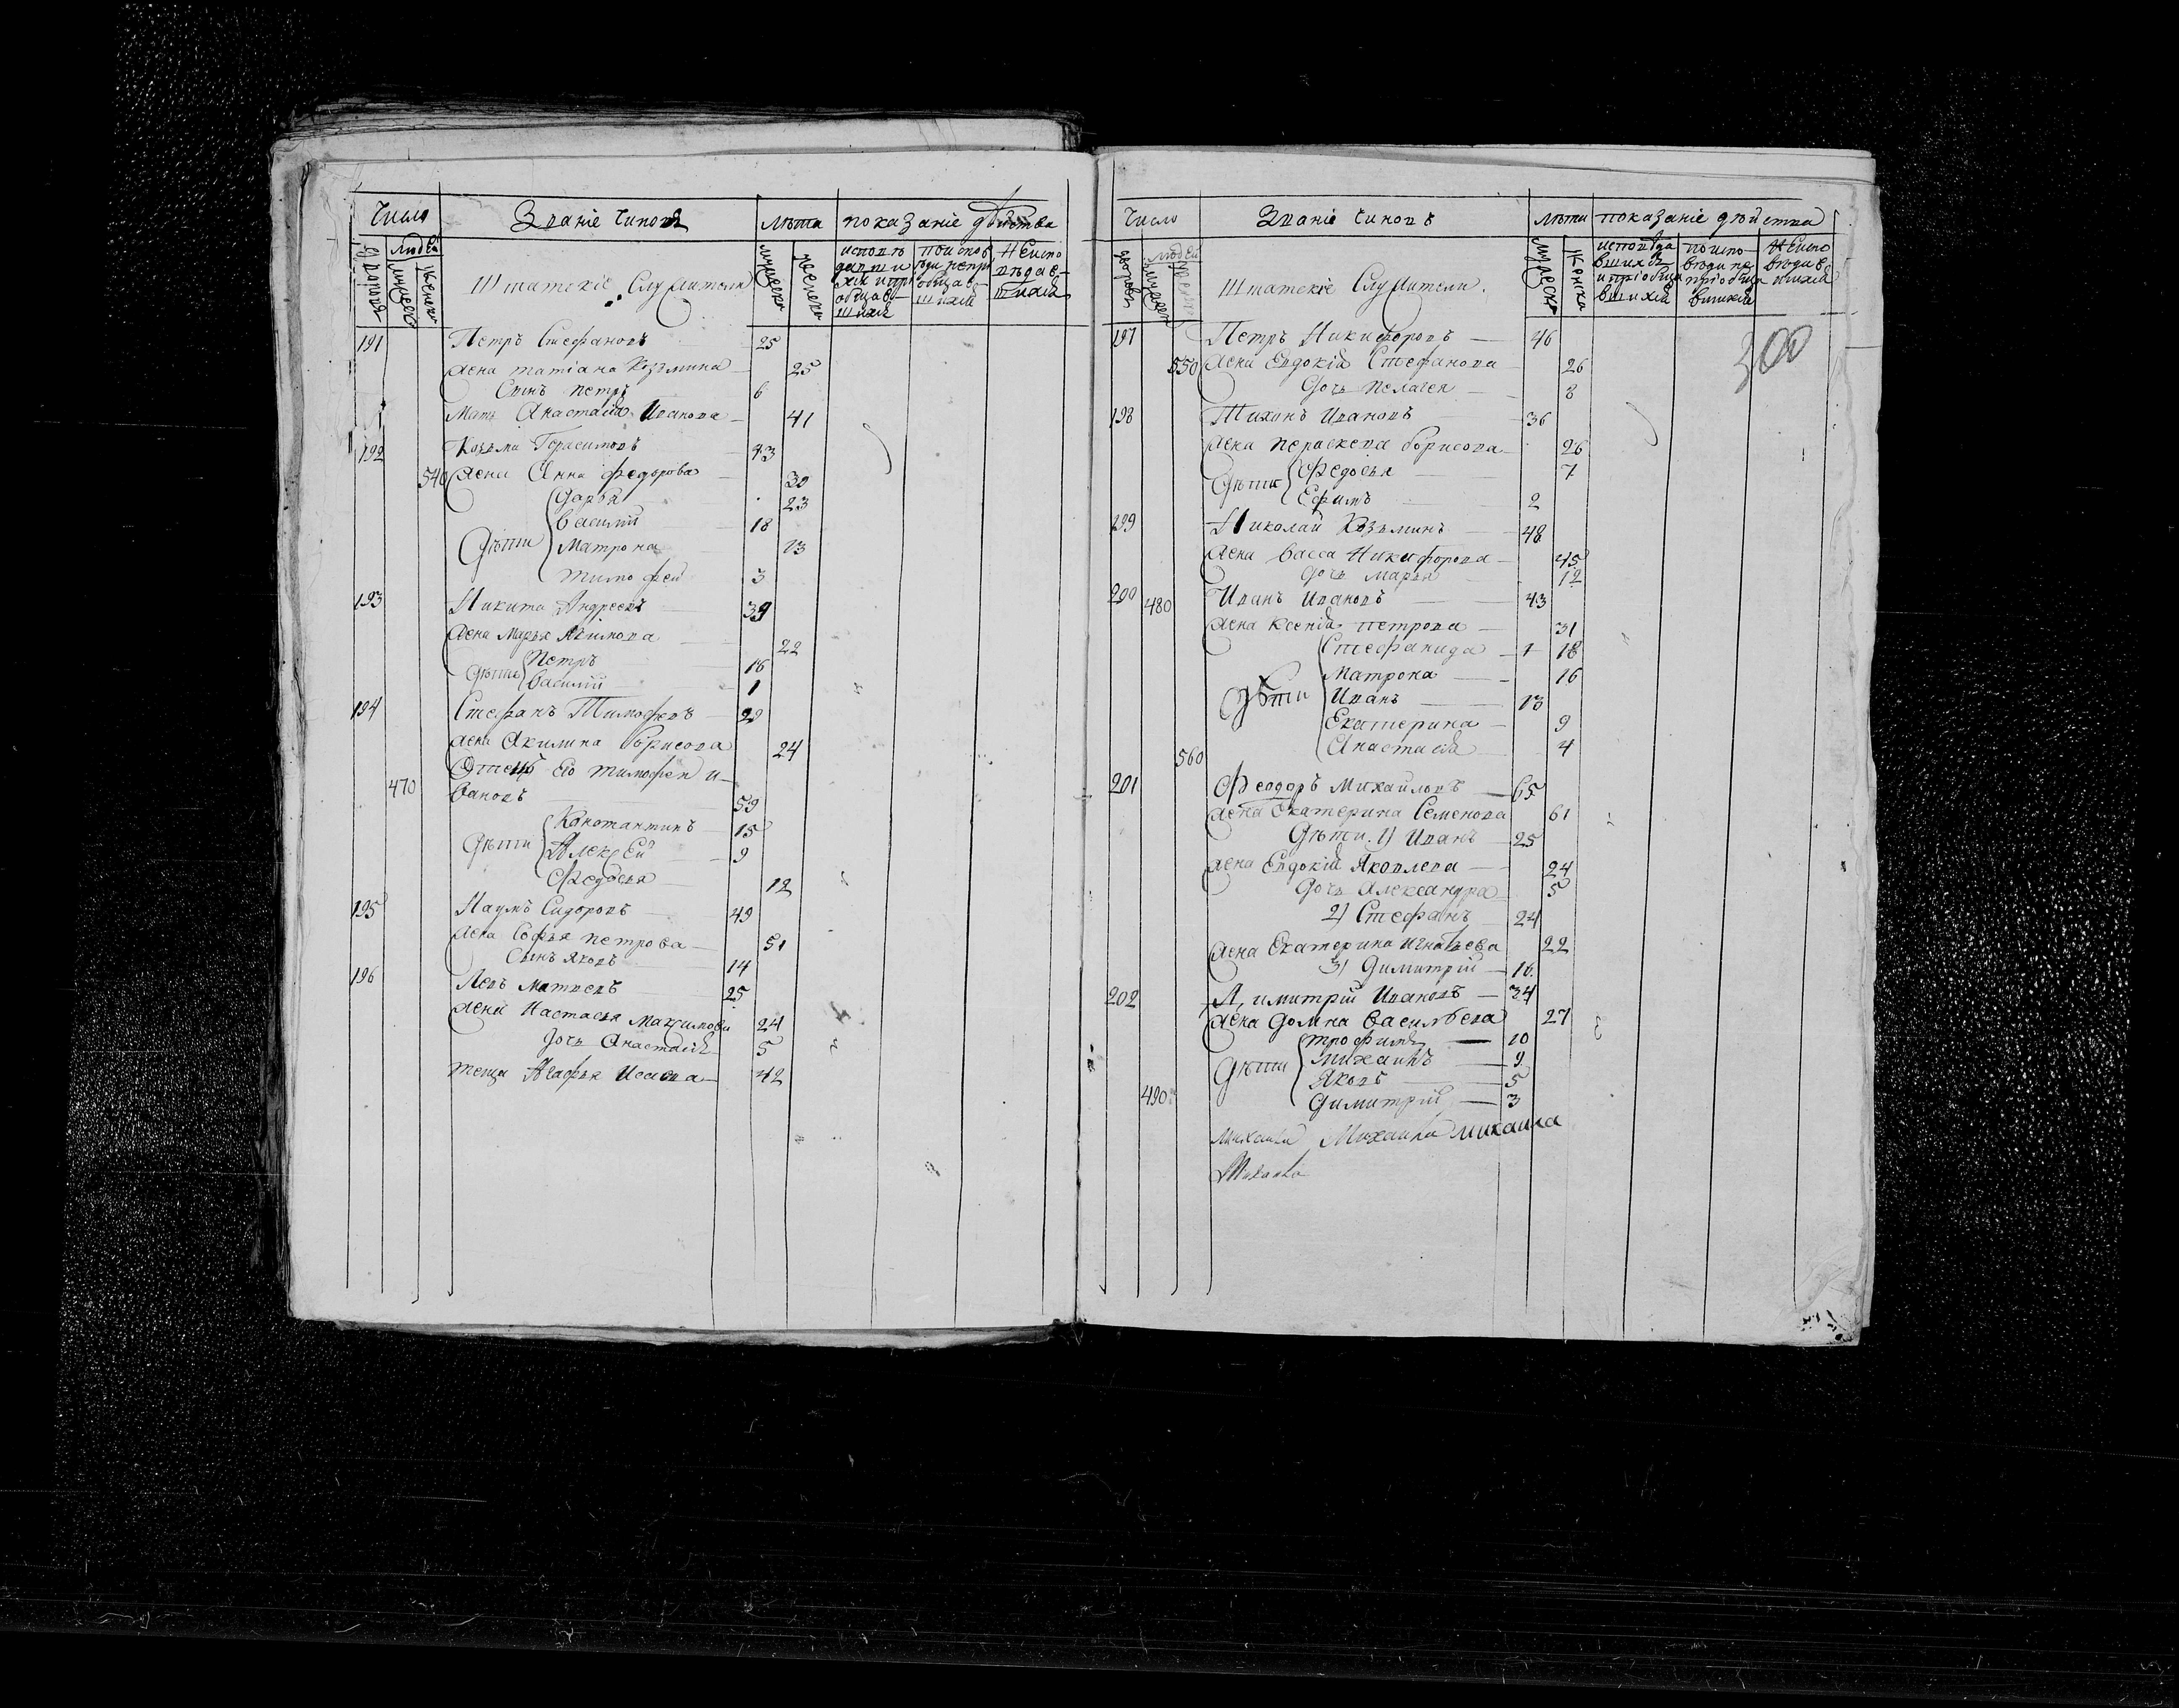 Число Званіе чиновъ лѣта показаніе дѣйства
дворовъ людей мужеск женска Штатскіе Служители мужеска женска исповѣдавшихся и пріобщавшихся поисповѣди непріобщавшихся Неисповѣдавшихся
191 Петръ Стефановъ 25
жена татіана Козьмина 25
Сынъ петръ 6
Мать Анастасія Иванова 41
192 Козьма Герасимовъ 43
540 жена Анна федорова 30
Дарья 23
Василій 18
Дѣти Матрона 13
тимофей 3
193 Никита Андреевъ 39
жена Марья Якимова 22
Дѣти Петръ 16
Василій 1
194 Стефанъ Тимофеевъ 29
жена Акилина борисова 24
Отецъ его тимофеи и
470 вановъ 59
Константинъ 15
Дѣти Алексѣй 9
Федосья 12
195 Наумъ Сидоровъ 49
жена Софья петрова 51
Сынъ яковъ 14
196 Левъ матвеевъ 25
жена Настасья Максимова 24
дочь Анастасія 5
теща Агафья Исаева 42
Число Званіе чиновъ лѣта показаніе дѣйства
дворовъ людей мужеск женск Штатскіе Служители. мужеска женска исповѣдавшихся и пріобщавшихся поисповѣди не пріобщавшихся Неисповѣдавшихся
300
197 Петръ Никифоровъ 46
550 жена Евдокія Стефанова 26
Дочь пелагея 8
198 Тихонъ Ивановъ 36
жена пераскева борисова 26
Дѣти Федосья 7
Ефимъ 2
299 Николай Козьминъ 48
жена Васса Никифорова 45
Дочь марья 12
200 480 Иванъ Ивановъ 43
жена ксенія петрова 31
Стефанида 1 18
Матрона 16
Дѣти Иванъ 13
Екатерина 9
560 Анастасія 4
201 Феодоръ Михаиловъ 65
жена Екатерина Семенова 61
Дѣти. 1) Иванъ 25
жена Евдокія Яковлева 24
Дочь Александра 5
2) Стефанъ 24
жена Екатерина игнатьева 22
3) Димитрій 16
202 Димитрій Ивановъ 34
жена Домна Васильева 27
трофимъ 10
Дѣти михаилъ 9
Яковъ 5
490 Димитрій 3
михаила Михаила михаила
Михаила